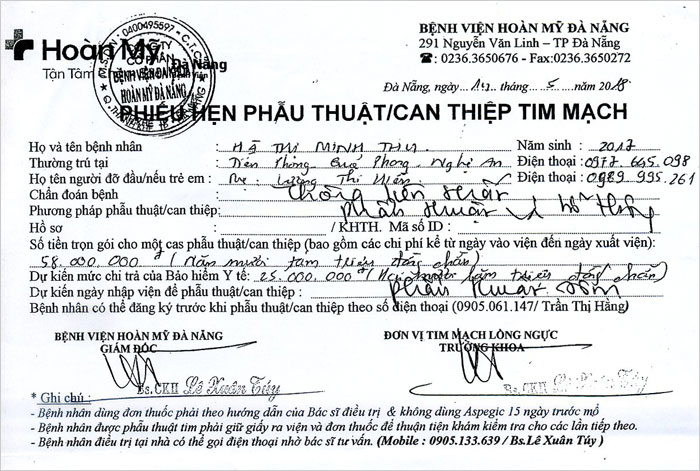 Hoàn Mỹ Đà Nẵng
Tận Tâm
M.S.D.N: 0400495597-C.T.C.P
CÔNG TY
CỔ PHẦN
BỆNH VIỆN ĐA KHOA
HOÀN MỸ ĐÀ NẴNG
BỆNH VIỆN HOÀN MỸ ĐÀ NẴNG
291 Nguyễn Văn Linh – TP Đà Nẵng
☎: 0236.3650676 - Fax:0236.3650272
Đà Nẵng, ngày tháng 5 năm 2018
PHIẾU HẸN PHẪU THUẬT/CAN THIỆP TIM MẠCH
Họ và tên bệnh nhân : Hà Thị Minh Thư Năm sinh : 2017
Thường trú tại : Tiền Phong Quế Phong Nghệ An Điện thoại : 0977.645.098
Họ tên người đỡ đầu/nếu trẻ em : Mẹ: Lương Thị Hiền Điện thoại : 0989 995.261
Chẩn đoán bệnh : Thông liên thất
Phương pháp phẫu thuật/can thiệp: Phẫu thuật vá lỗ thông
Hồ sơ : / KHTH. Mã số ID :
Số tiền trọn gói cho một cas phẫu thuật/can thiệp (bao gồm các chi phí kể từ ngày vào viện đến ngày xuất viện):
58.000.000đ (Năm mươi tám triệu đồng chẵn)
Dự kiến mức chi trả của Bảo hiểm Y tế: 25.000.000đ (Hai mươi lăm triệu đồng chẵn)
Dự kiến ngày nhập viện để phẫu thuật/can thiệp : Phẫu thuật sớm
Bệnh nhân có thể đăng ký trước khi phẫu thuật/can thiệp theo số điện thoại (0905.061.147/ Trần Thị Hằng)
BỆNH VIỆN HOÀN MỸ ĐÀ NẴNG
GIÁM ĐỐC
Bs.CKII Lê Xuân Túy
ĐƠN VỊ TIM MẠCH LỒNG NGỰC
TRƯỞNG KHOA
Bs.CKII Lê Xuân Túy
* Ghi chú :
- Bệnh nhân dùng đơn thuốc phải theo hướng dẫn của Bác sĩ điều trị & không dùng Aspegic 15 ngày trước mổ
- Bệnh nhân được phẫu thuật tim phải giữ giấy ra viện và đơn thuốc để thuận tiện khám kiểm tra cho các lần tiếp theo.
- Bệnh nhân điều trị tại nhà có thể gọi điện thoại nhờ bác sĩ tư vấn. (Mobile : 0905.133.639 / Bs.Lê Xuân Túy )